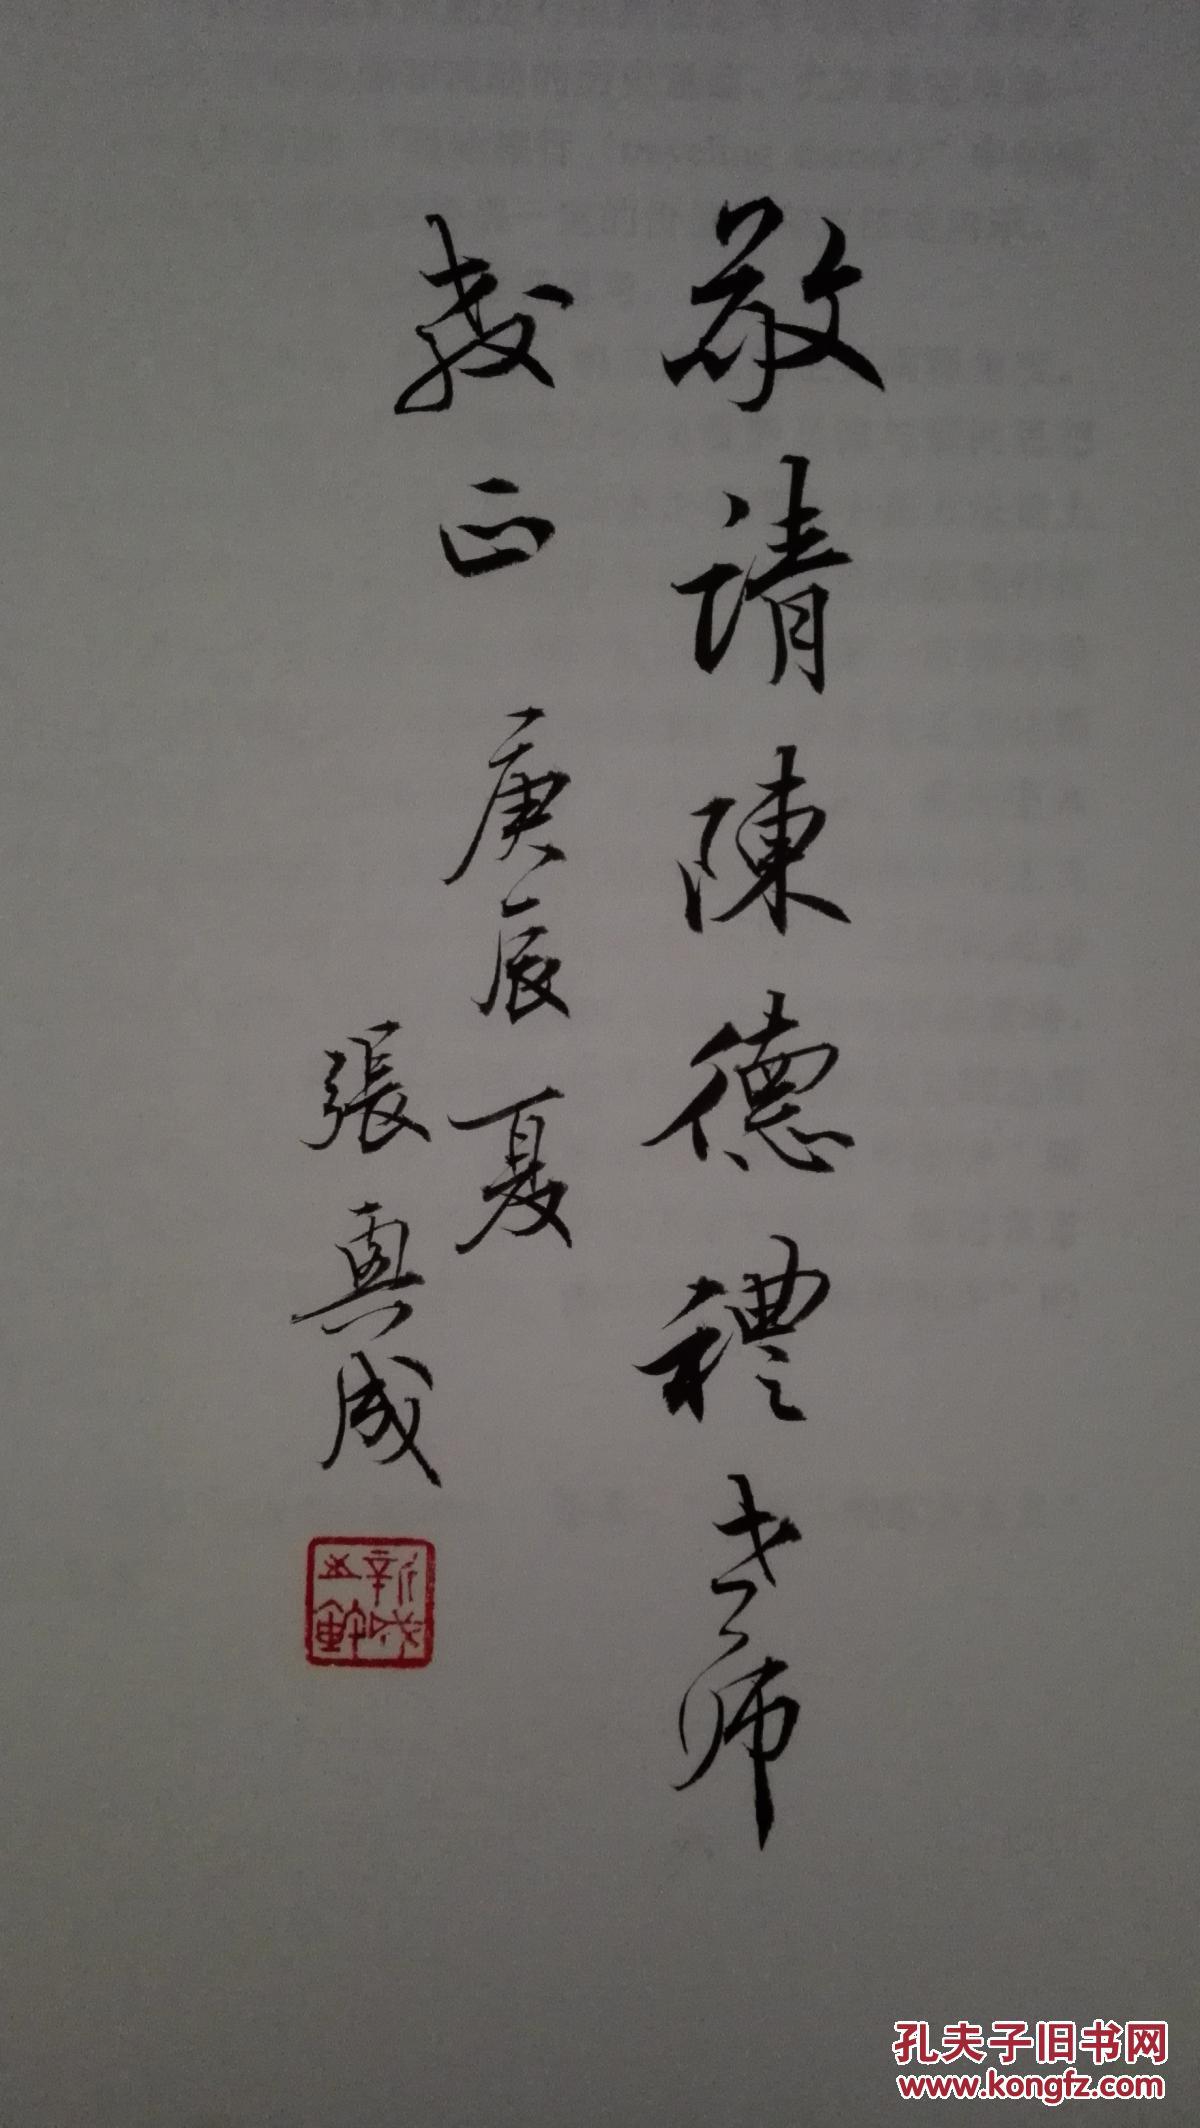 敬請陳德禮老师
教正
庚辰夏
張興成
孔夫子旧书网
www.kongfz.com